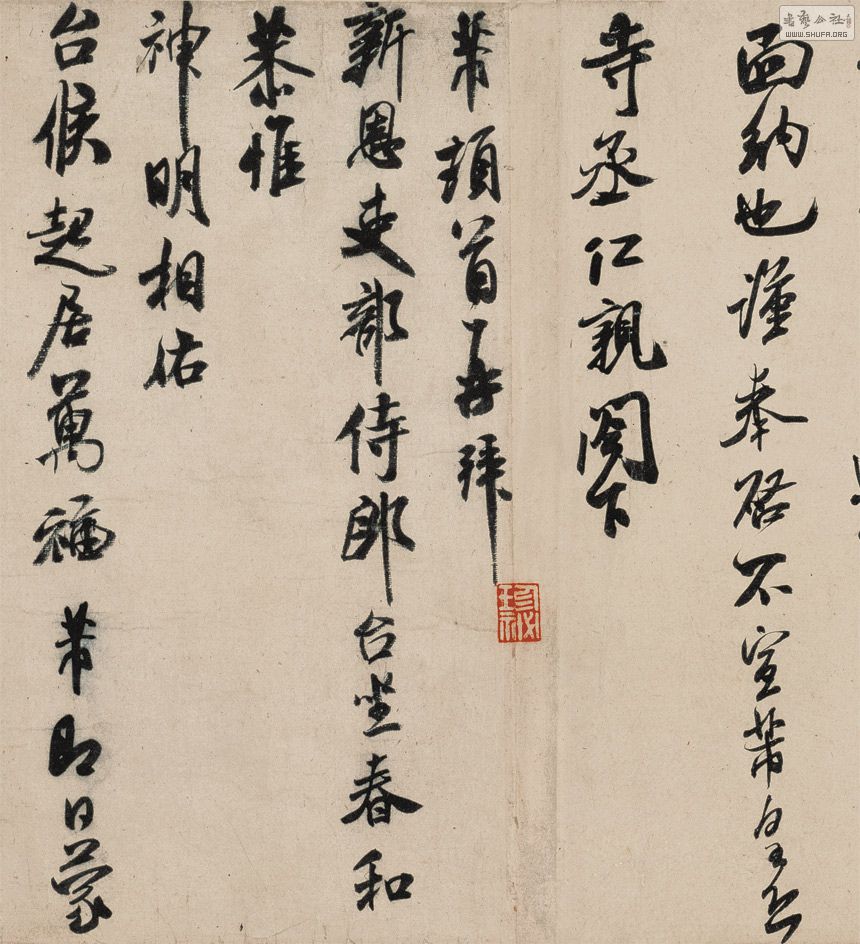 面納也謹奉啓不宣芾皇恐
寺丞仁親閤下
芾頓首再拜
新恩吏部侍郎台坐春和
恭惟
神明相佑
台候起居萬福芾即日蒙
珍秘
WWW.SHUFA.ORG